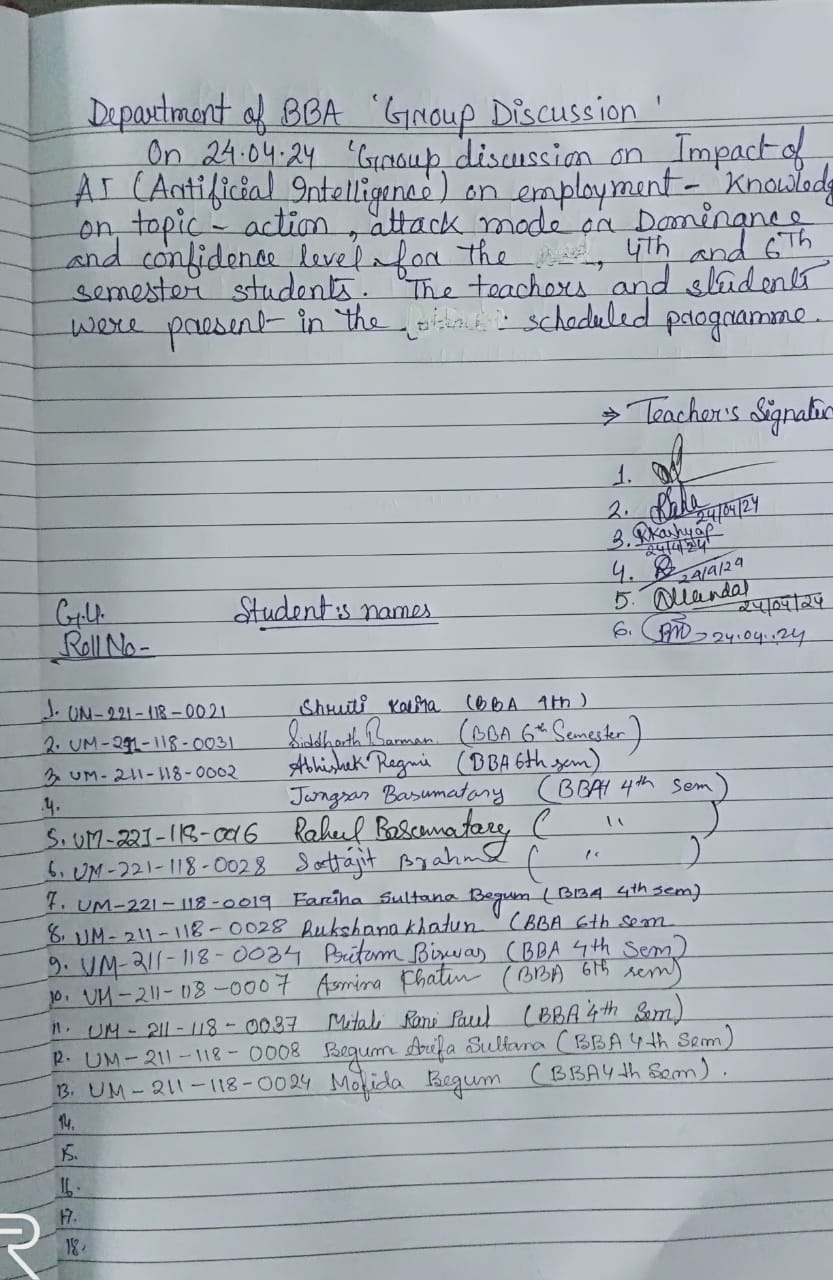 Department of BBA 'Group Discussion'
On 24.04.24 'Group discussion on Impact of
AI (Artificial Intelligence) on employment - Knowledg
on topic - action, attack mode on Dominance
and confidence level for the , 4th and 6Th
semester students. The teachers and students
were present in the scheduled programme.
⇒ Teacher's Signatu
1.
2. 24/04/24
3. RKashyap
24/4/24
4. 24/4/24
5. Mandal
24/04/24
6. 24.04.24
G.U. Student's names
Roll No-
1. UM-221-118-0021 Shruti (BBA 4th)
2. UM-211-118-0031 Siddharth Barman. (BBA 6th Semester)
3. UM-211-118-0002 Abhishek Regmi (BBA 6th sem)
4. Jungsar Basumatary (BBA 4th Sem)
5. UM-221-118-0016 Rahul Basumatary ( " )
6. UM-221-118-0028 Sattajit Brahma ( " )
7. UM-221-118-0019 Fariha Sultana Begum (BBA 4th sem)
8. UM-211-118-0028 Rukshana khatun (BBA 6th sem
9. UM-211-118-0034 Pritam Biswas (BBA 4th Sem)
10. UM-211-118-0007 Asmina Khatun (BBA 6th sem)
11. UM-211-118-0037 Mitali Rani Paul (BBA 4th Sem)
12. UM-211-118-0008 Begum Arifa Sultana (BBA 4th Sem)
13. UM-211-118-0024 Mofida Begum (BBA 4th Sem).
14.
15.
16.
17.
18.